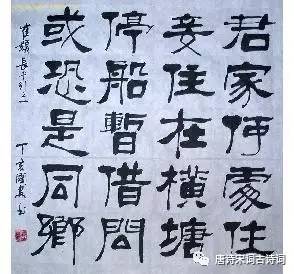 君家何處住
妾住在橫塘
停船暫借問
或恐是同鄉
崔顥長干行之一
丁亥
唐诗宋词古诗词